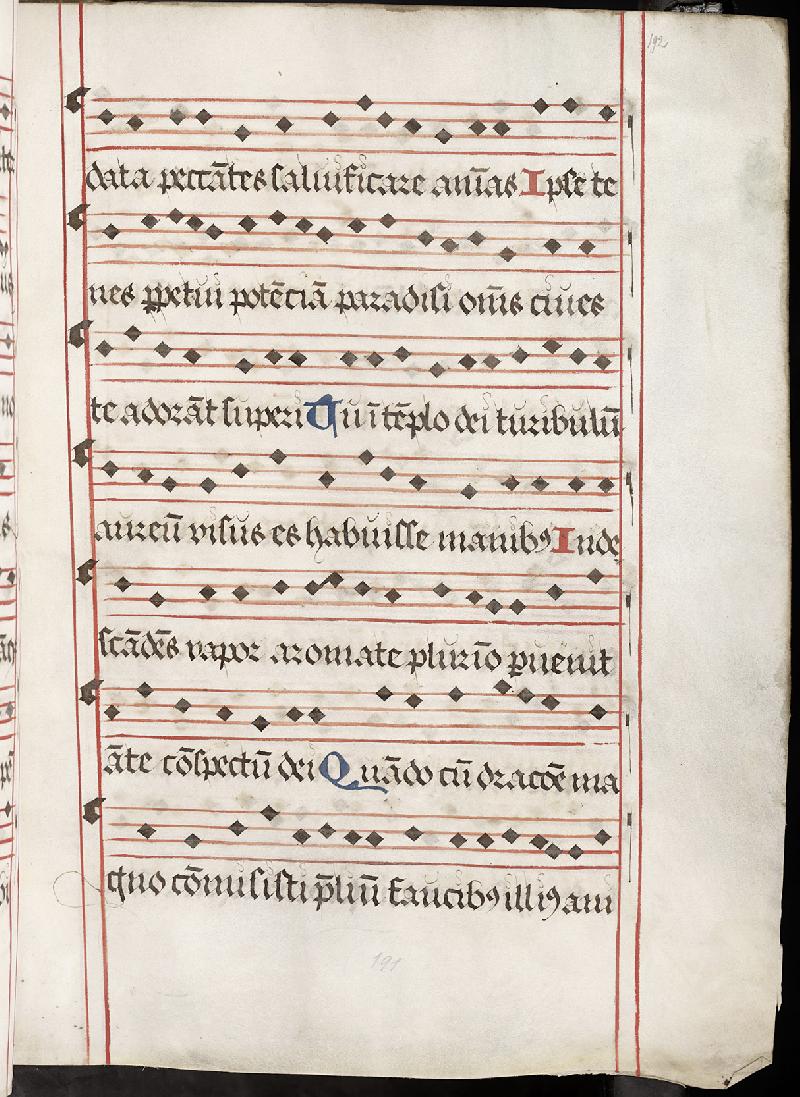 192
data peccātes saluificare aīas Ipse te
nes ppetiu potēciā paradisi oīns ciues
te adorāt superi Tu ī tēplo dei turibulū
aureū visus es habuisse manibꝰ Inde
scādēs vapor aromate plurīo puenit
āte cōspectū dei Quādo cū dracōe ma
gno cōmisisti p̄liū faucibꝰ illiꝰ ani
191